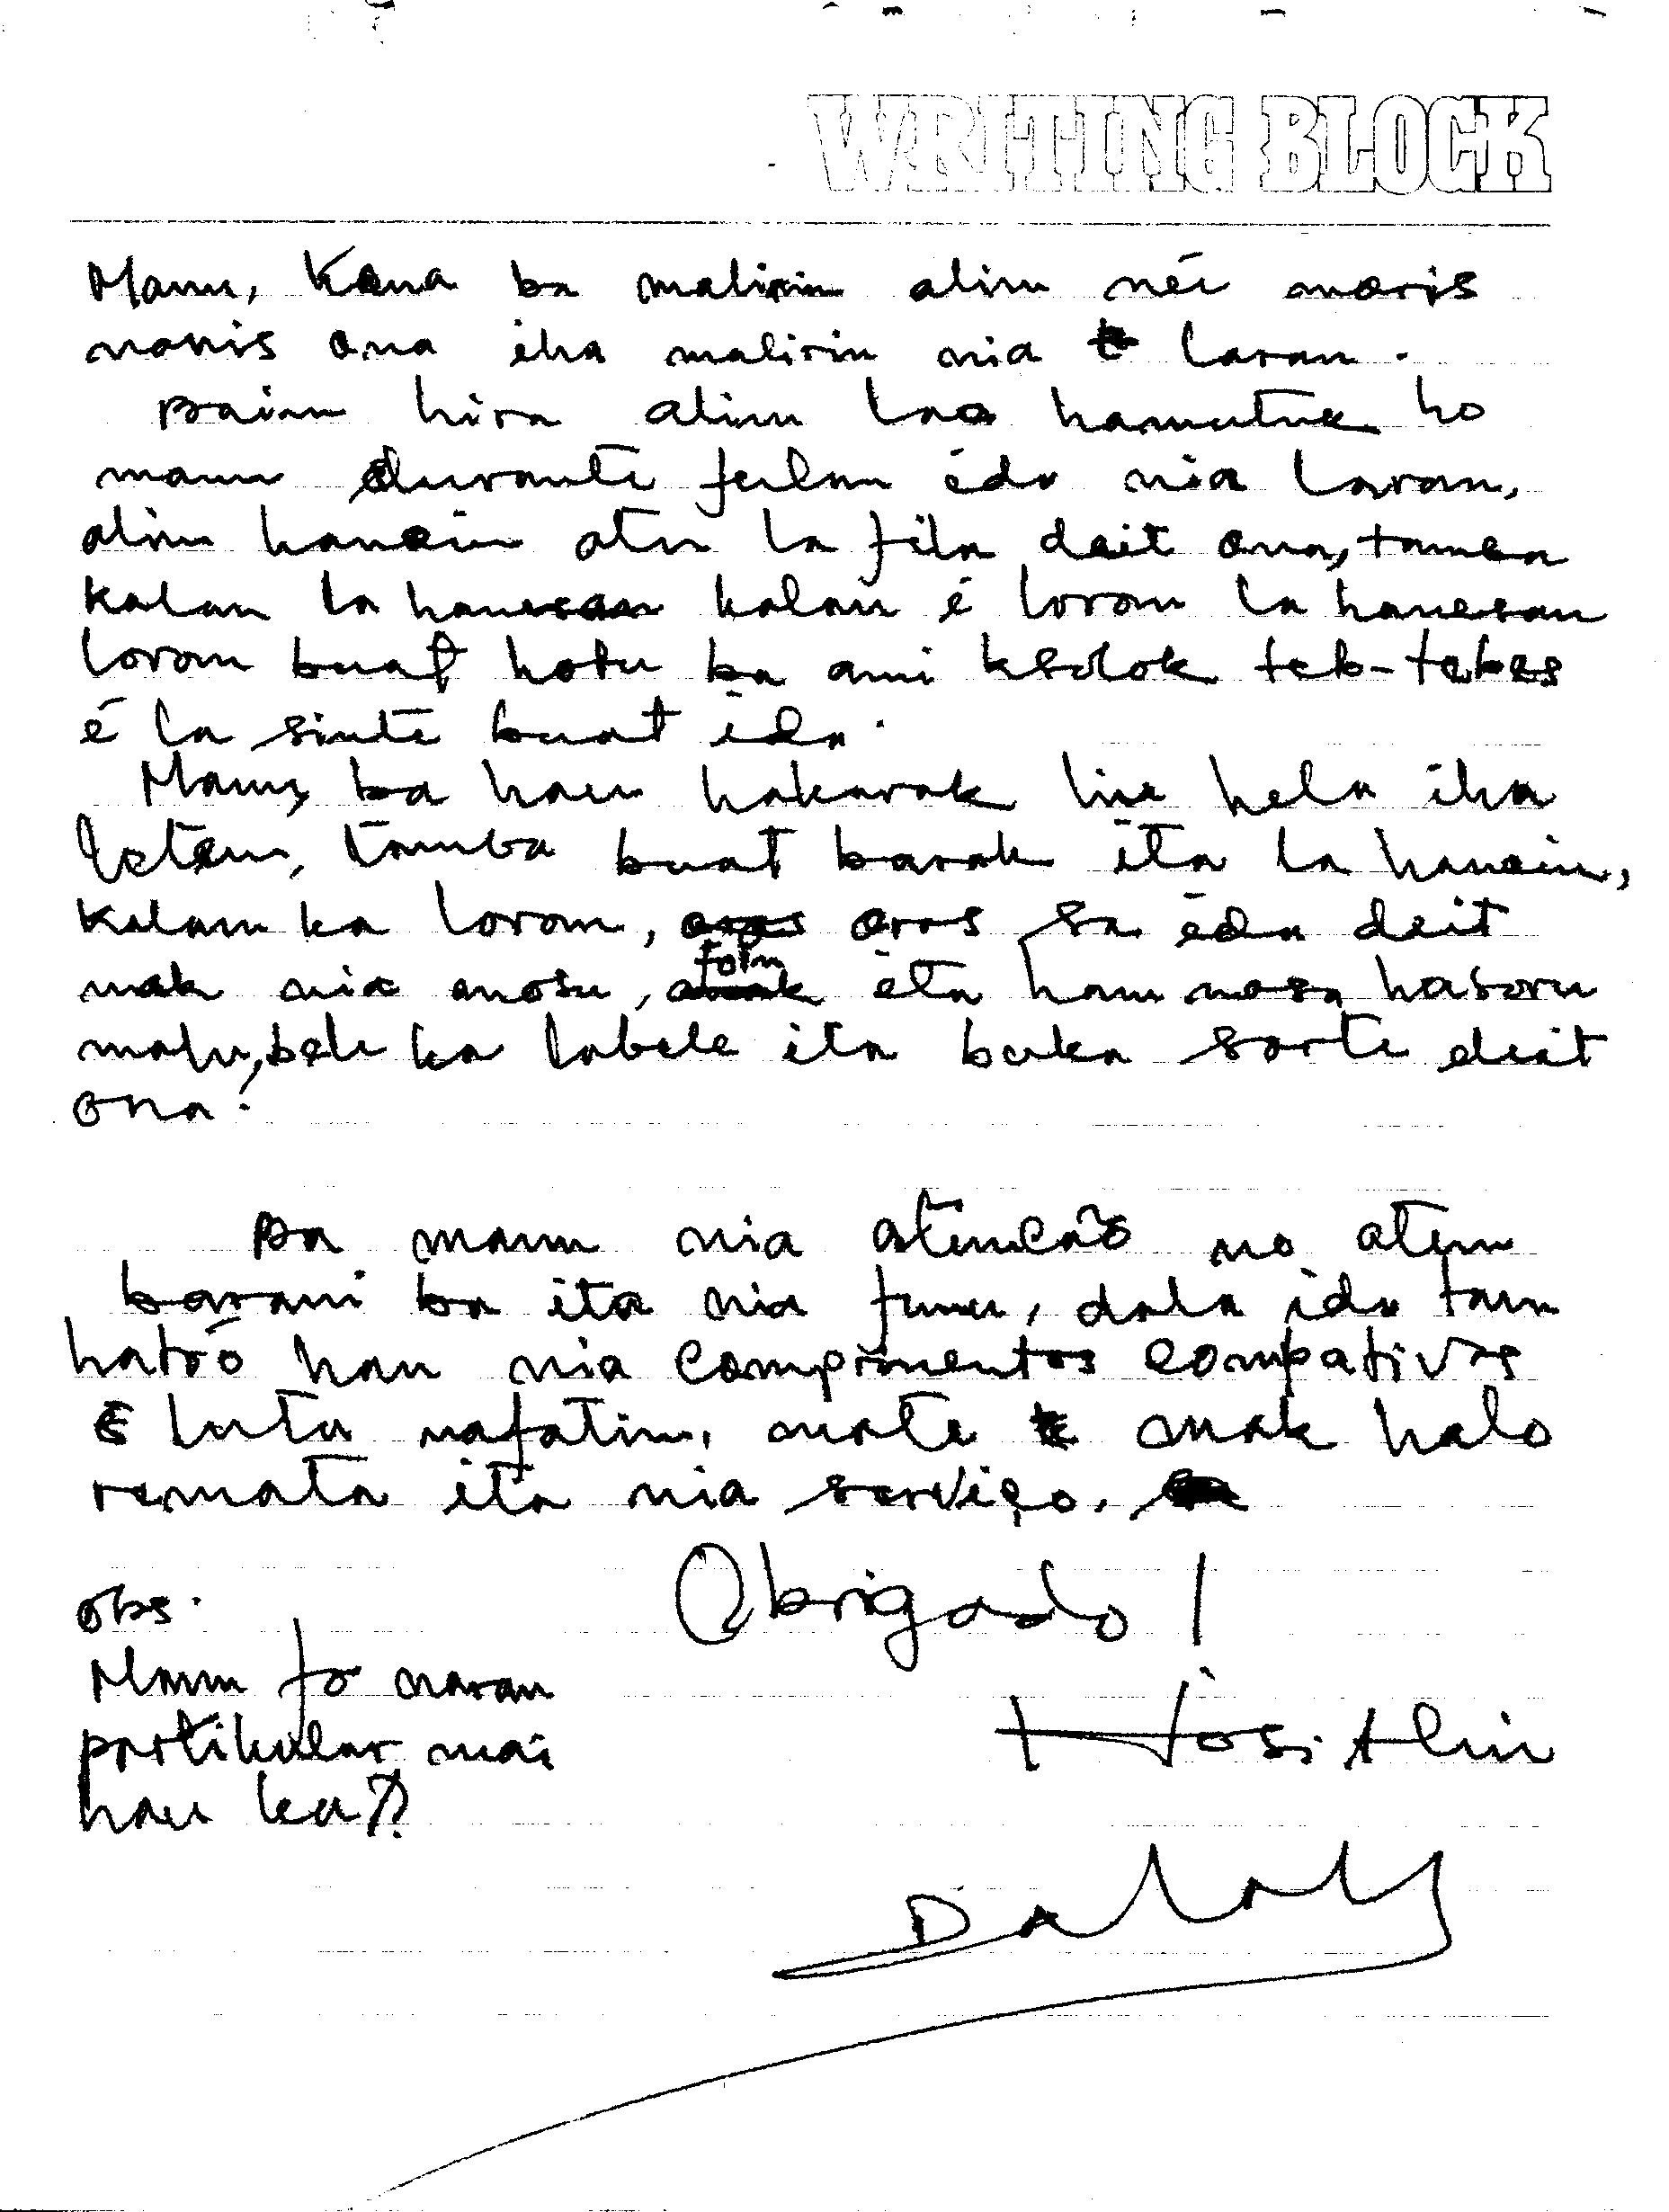 WRITING BLOCK
Maun, Kona ba malirin alin néi moris
nanis ona iha malirin nia laran.
Bainhira alin lao hamutuk ho
maun durante fulan ida nia laran,
alin hanoin atu la fila deit ona, tamba
kalan la hanesan kalan é loron la hanesan
loron buat hotu ba ami ksolok teb-tebes
é la sinte buat ida.
Maun, ba hau hakarak liu hela iha
leten, tamba buat barak ita la hanoin,
kalan ka loron, oras sa ida deit
mak nia mosu, foin ita hamnasa hasoru
malu, bele ka labele ita buka sorte deit
ona!
Ba maun nia atencão no aten
barani ba ita nia funu, dala ida tan
hato'o hau nia comprimentos combativas
e luta nafatin, mate mak halo
remata ita nia serviço.
Obrigado!
obs.
Maun fo naran
partikular mai
hau ka??
Hosi Alin